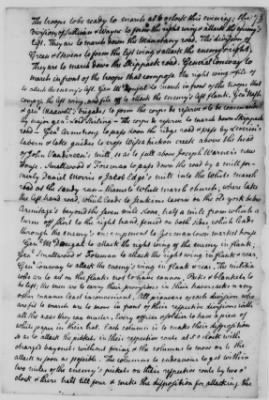 The troops to be ready to march at 6 o'clock this evening; the
divisions of Sullivan & Wayne to form the right wing & attack the enemy's
left. They are to march down the Manatawny road. The divisions of
Green & Stevens to form the left wing & attack the enemy's right.
They are to march down the Skippack road. General Conway to
march in front of the troops that compose the right wing & file of
to attack the enemy's left flank. Gen. McDougal to march in front of the troops that
compose the left wing, and file off to attack the enemy's left flank. Gen. Nash
& Gen. Maxwell's brigade to form the corps de reserve & to be commanded
by major gen. Lord Stirling. The corps de reserve to march down Skippack
road. Gen. Armstrong to pass down the ridge road & pass by Leverin's
tavern & take guides to cross Wissahickon creek above the head
of John Vandeerin's mill, so as to pass above Joseph Warner's new
house. Smallwood & Foreman to pass down the road by a mill for-
merly Daniel Morris & Jacob Edge's mill into the White marsh
road at the Sandy run: thence to White marsh church, where take
the left hand road, which leads to Jenkins tavern on the old york below
Armitage's beyond the seven mile stone, half a mile from which
turns off short to the right hand, fenced on both sides which leads
through the enemy's encampment to Germantown market house
Gen. McDougal to attack the right wing of the enemy in flank;
Gen. Smallwood & Foreman to attack the right wing in flank & rear,
Gen. Conway to attack the enemy's wing in flank & rear. The militia
who are to act on the flanks not to have cannon. Packs & blankets to
be left; the men are to carry their provisions in their haversacks or any
other manner least inconvenient. All pioneers of each division who
are fit to march are to move in front of their respective divisions with
all the axes they can muster. Every officer & soldier to have a piece of
white paper in their hat. Each column is to make their disposition
so as to attack the pickets in their respective routs at 5 o'clock with
charged bayonets without firing & the columns to move on to the
attack as soon as possible. The columns to endeavour to get within
two miles of the enemy's pickets on their respective routs by two o'
clock & there halt till four & make the disposition for attacking the